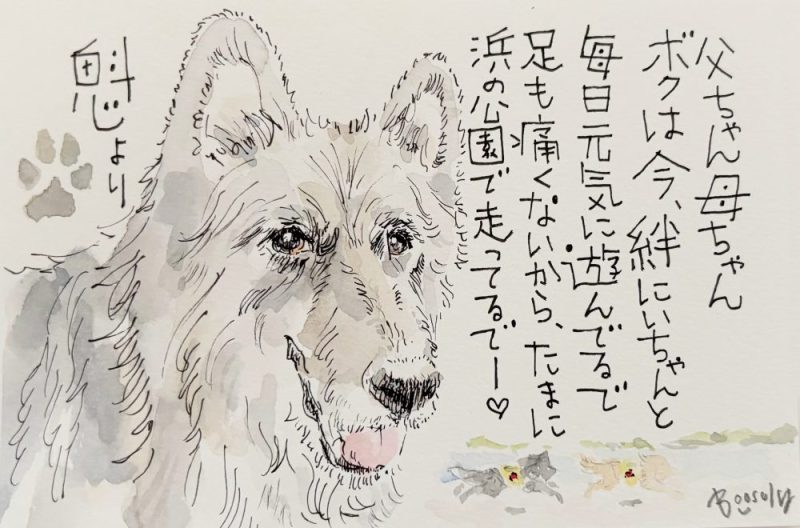 父ちゃん母ちゃん
ボクは今、絆にいちゃんと
毎日元気に遊んでるで
足も痛くないから、たまに
浜の公園で走ってるでー♡
魁より